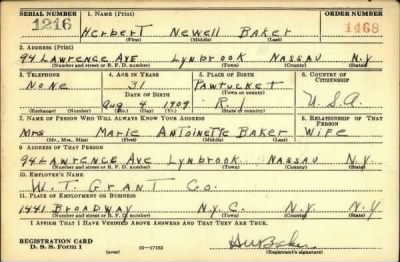 SERIAL NUMBER 1. NAME (Print) ORDER NUMBER
1216 Herbert Newell Baker 1468
(First) (Middle) (Last)
2. ADDRESS (Print)
94 Lawrence Ave Lynbrook Nassau N.Y.
(Number and street or R. F. D. number) (Town) (County) (State)
3. TELEPHONE 4. AGE IN YEARS 5. PLACE OF BIRTH 6. COUNTRY OF CITIZENSHIP
None 31 Pawtucket
(Town or county)
DATE OF BIRTH
Aug 4 1909 R.I. U.S.A.
(Exchange) (Number) (Mo.) (Day) (Yr.) (State or country)
7. NAME OF PERSON WHO WILL ALWAYS KNOW YOUR ADDRESS 8. RELATIONSHIP OF THAT PERSON
Mrs Marie Antoinette Baker Wife
(Mr., Mrs., Miss) (First) (Middle) (Last)
9. ADDRESS OF THAT PERSON
94 Lawrence Ave Lynbrook Nassau N.Y.
(Number and street or R. F. D. number) (Town) (County) (State)
10. EMPLOYER'S NAME
W.T. Grant Co.
11. PLACE OF EMPLOYMENT OR BUSINESS
1441 Broadway N.Y.C. N.Y. N.Y
(Number and street or R. F. D. number) (Town) (County) (State)
I AFFIRM THAT I HAVE VERIFIED ABOVE ANSWERS AND THAT THEY ARE TRUE.
REGISTRATION CARD
D. S. S. Form 1 (over) 16-17105 (Registrant's signature)